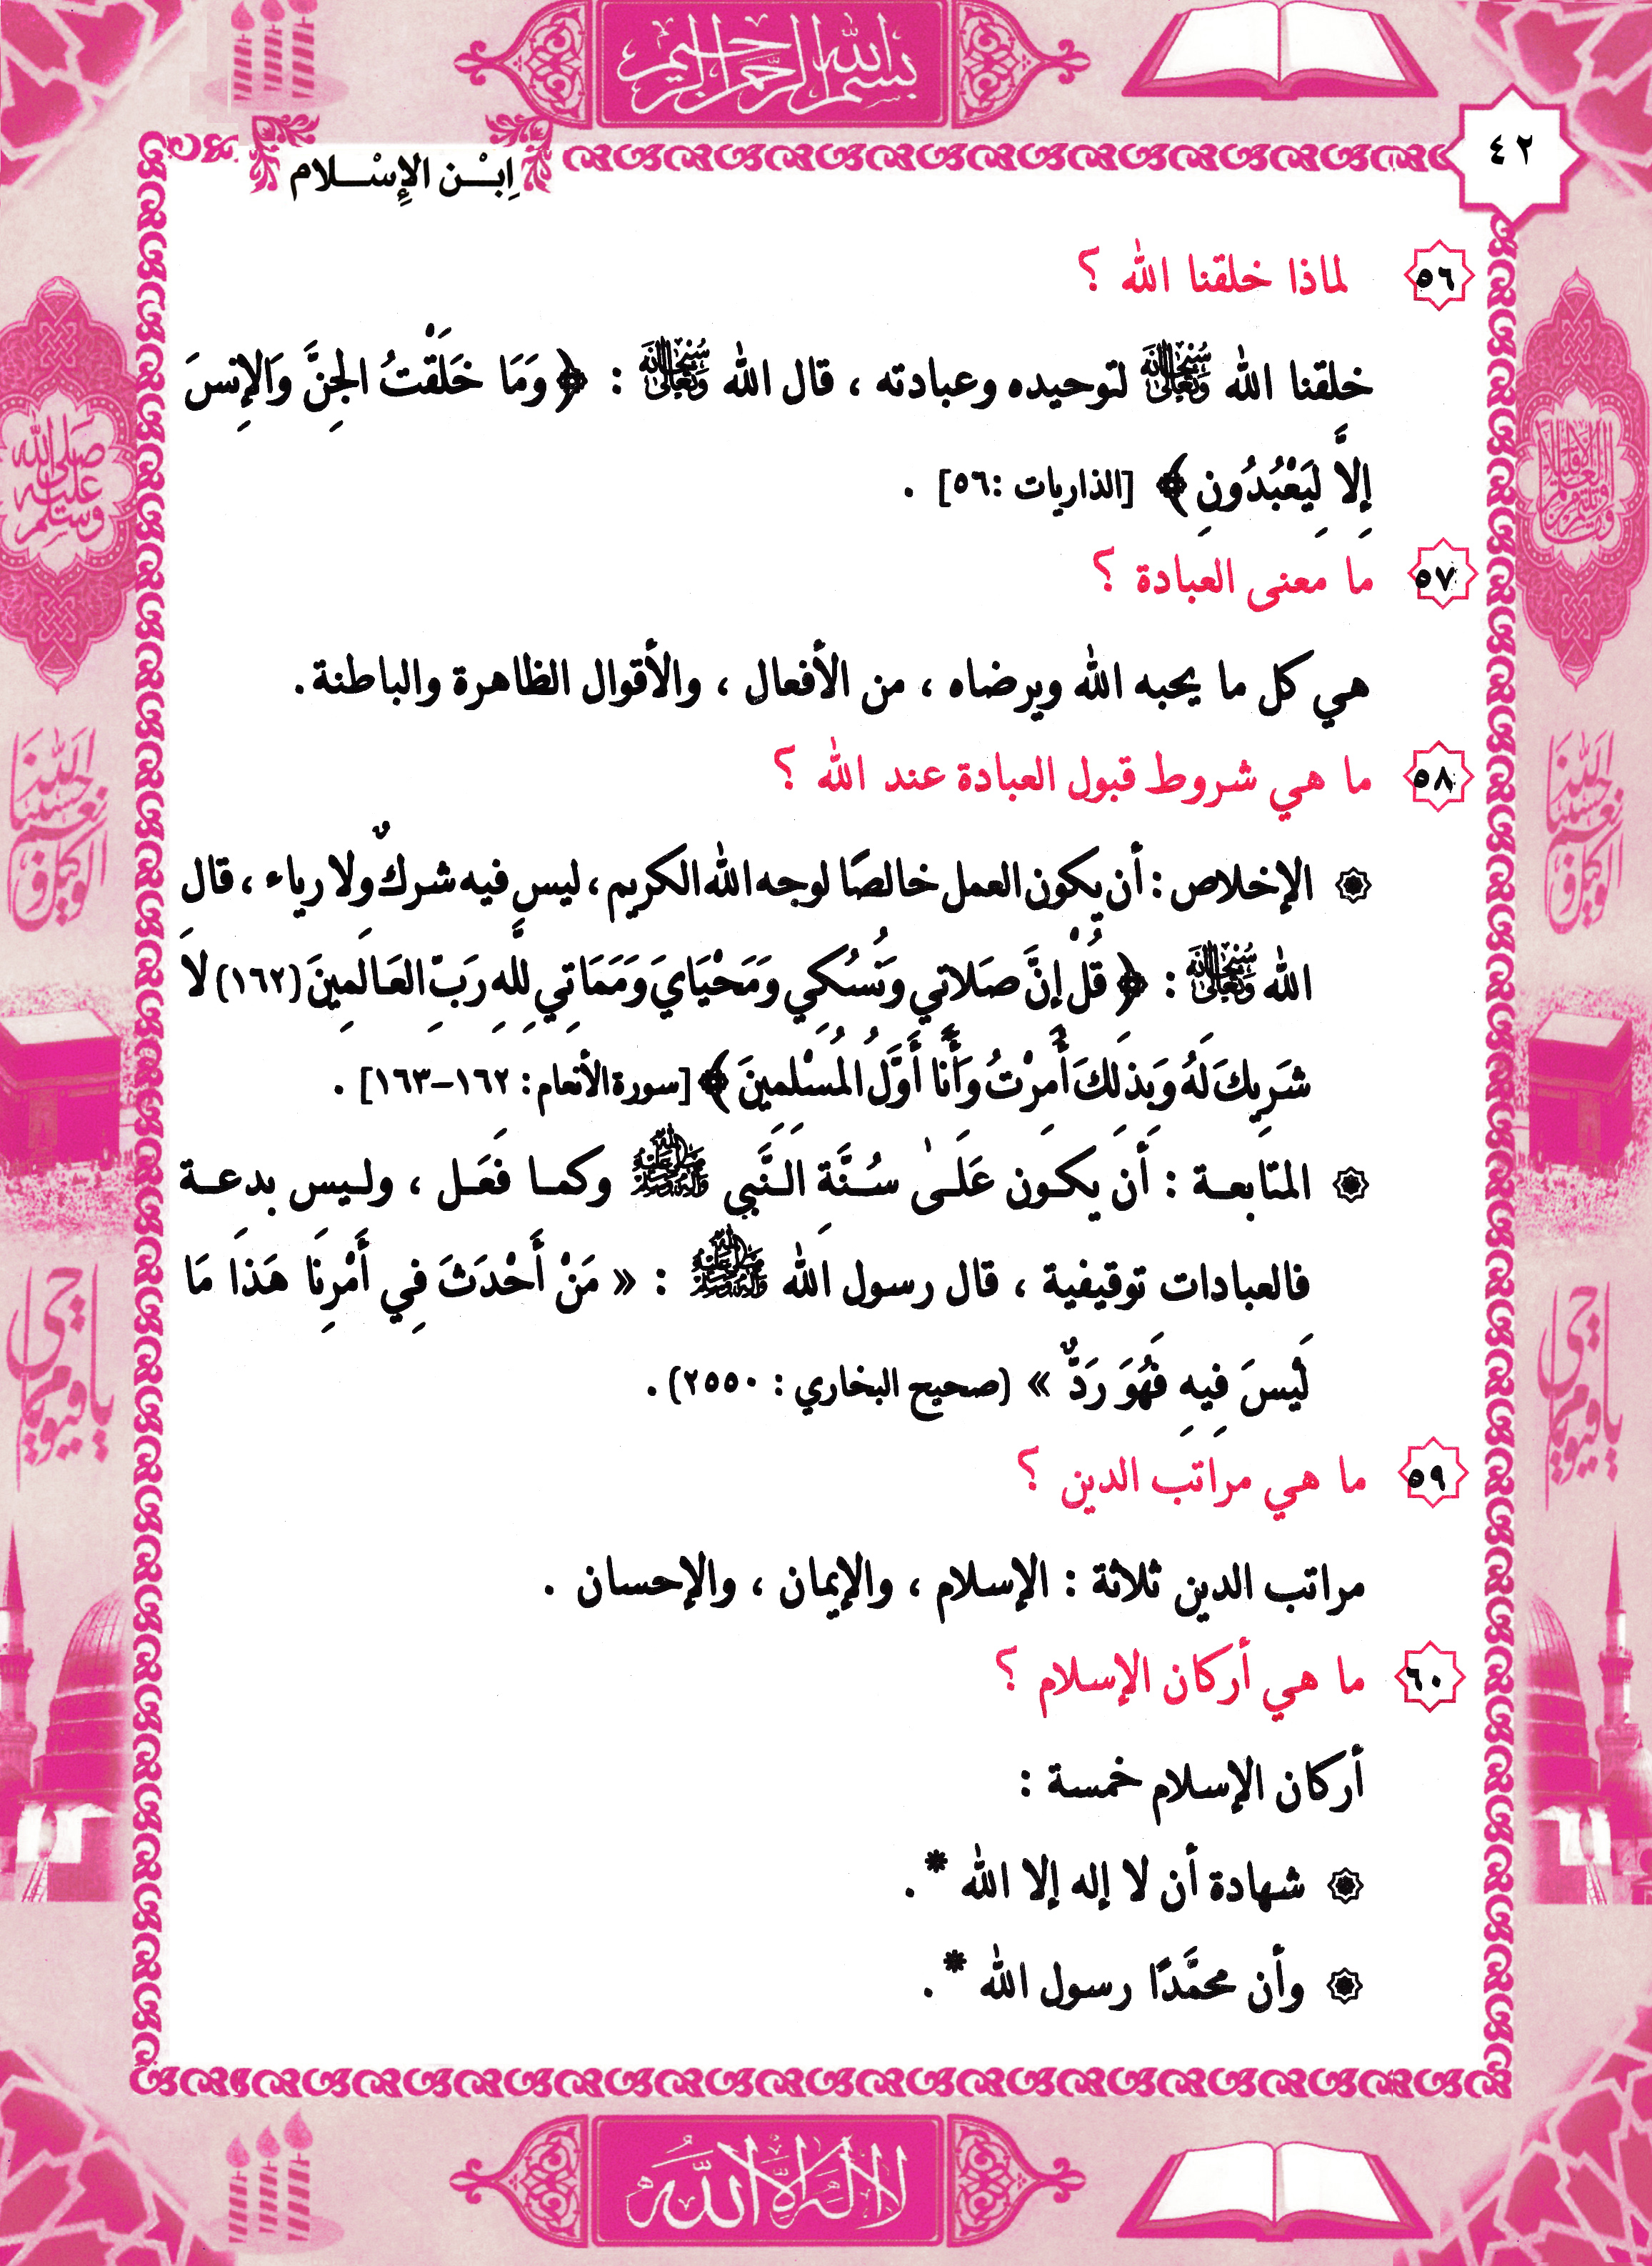 بسم الله الرحمن الرحيم
٤٢
اِبْـن الإِسْـلام
٥٦ لماذا خلقنا الله ؟
خلقنا الله سُبْحَانَهُ وَتَعَالَى لتوحيده وعبادته ، قال الله سُبْحَانَهُ وَتَعَالَى : ﴿ وَمَا خَلَقْتُ الجِنَّ وَالإِنسَ
إِلاَّ لِيَعْبُدُونِ ﴾ [الذاريات :٥٦] .
٥٧ ما معنى العبادة ؟
هي كل ما يحبه الله ويرضاه ، من الأفعال ، والأقوال الظاهرة والباطنة.
٥٨ ما هي شروط قبول العبادة عند الله ؟
۞ الإخلاص : أن يكون العمل خالصًا لوجه الله الكريم ، ليس فيه شركٌ ولا رياء ، قال
الله سُبْحَانَهُ وَتَعَالَى : ﴿ قُلْ إِنَّ صَلاتِي وَنُسُكِي وَمَحْيَايَ وَمَمَاتِي لِلَّهِ رَبِّ العَالَمِينَ (١٦٢) لاَ
شَرِيكَ لَهُ وَبِذَلِكَ أُمِرْتُ وَأَنَا أَوَّلُ المُسْلِمِينَ ﴾ [سورة الأنعام: ١٦٢–١٦٣] .
۞ المتابعـة : أن يكـون عَلَـىٰ سُـنَّةِ النَّبِي ﷺ وكمـا فَعَـل ، ولـيس بدعـة
فالعبادات توقيفية ، قال رسول الله ﷺ : « مَنْ أَحْدَثَ فِي أَمْرِنَا هَذَا مَا
لَيْسَ فِيهِ فَهُوَ رَدٌّ » (صحيح البخاري : ٢٥٥٠) .
٥٩ ما هي مراتب الدين ؟
مراتب الدين ثلاثة : الإسلام ، والإيمان ، والإحسان .
٦٠ ما هي أركان الإسلام ؟
أركان الإسلام خمسة :
۞ شهادة أن لا إله إلا الله * .
۞ وأن محمَّدًا رسول الله * .
صلى الله عليه وسلم
حسبنا الله ونعم الوكيل
يا حي يا قيوم
لا إله إلا الله